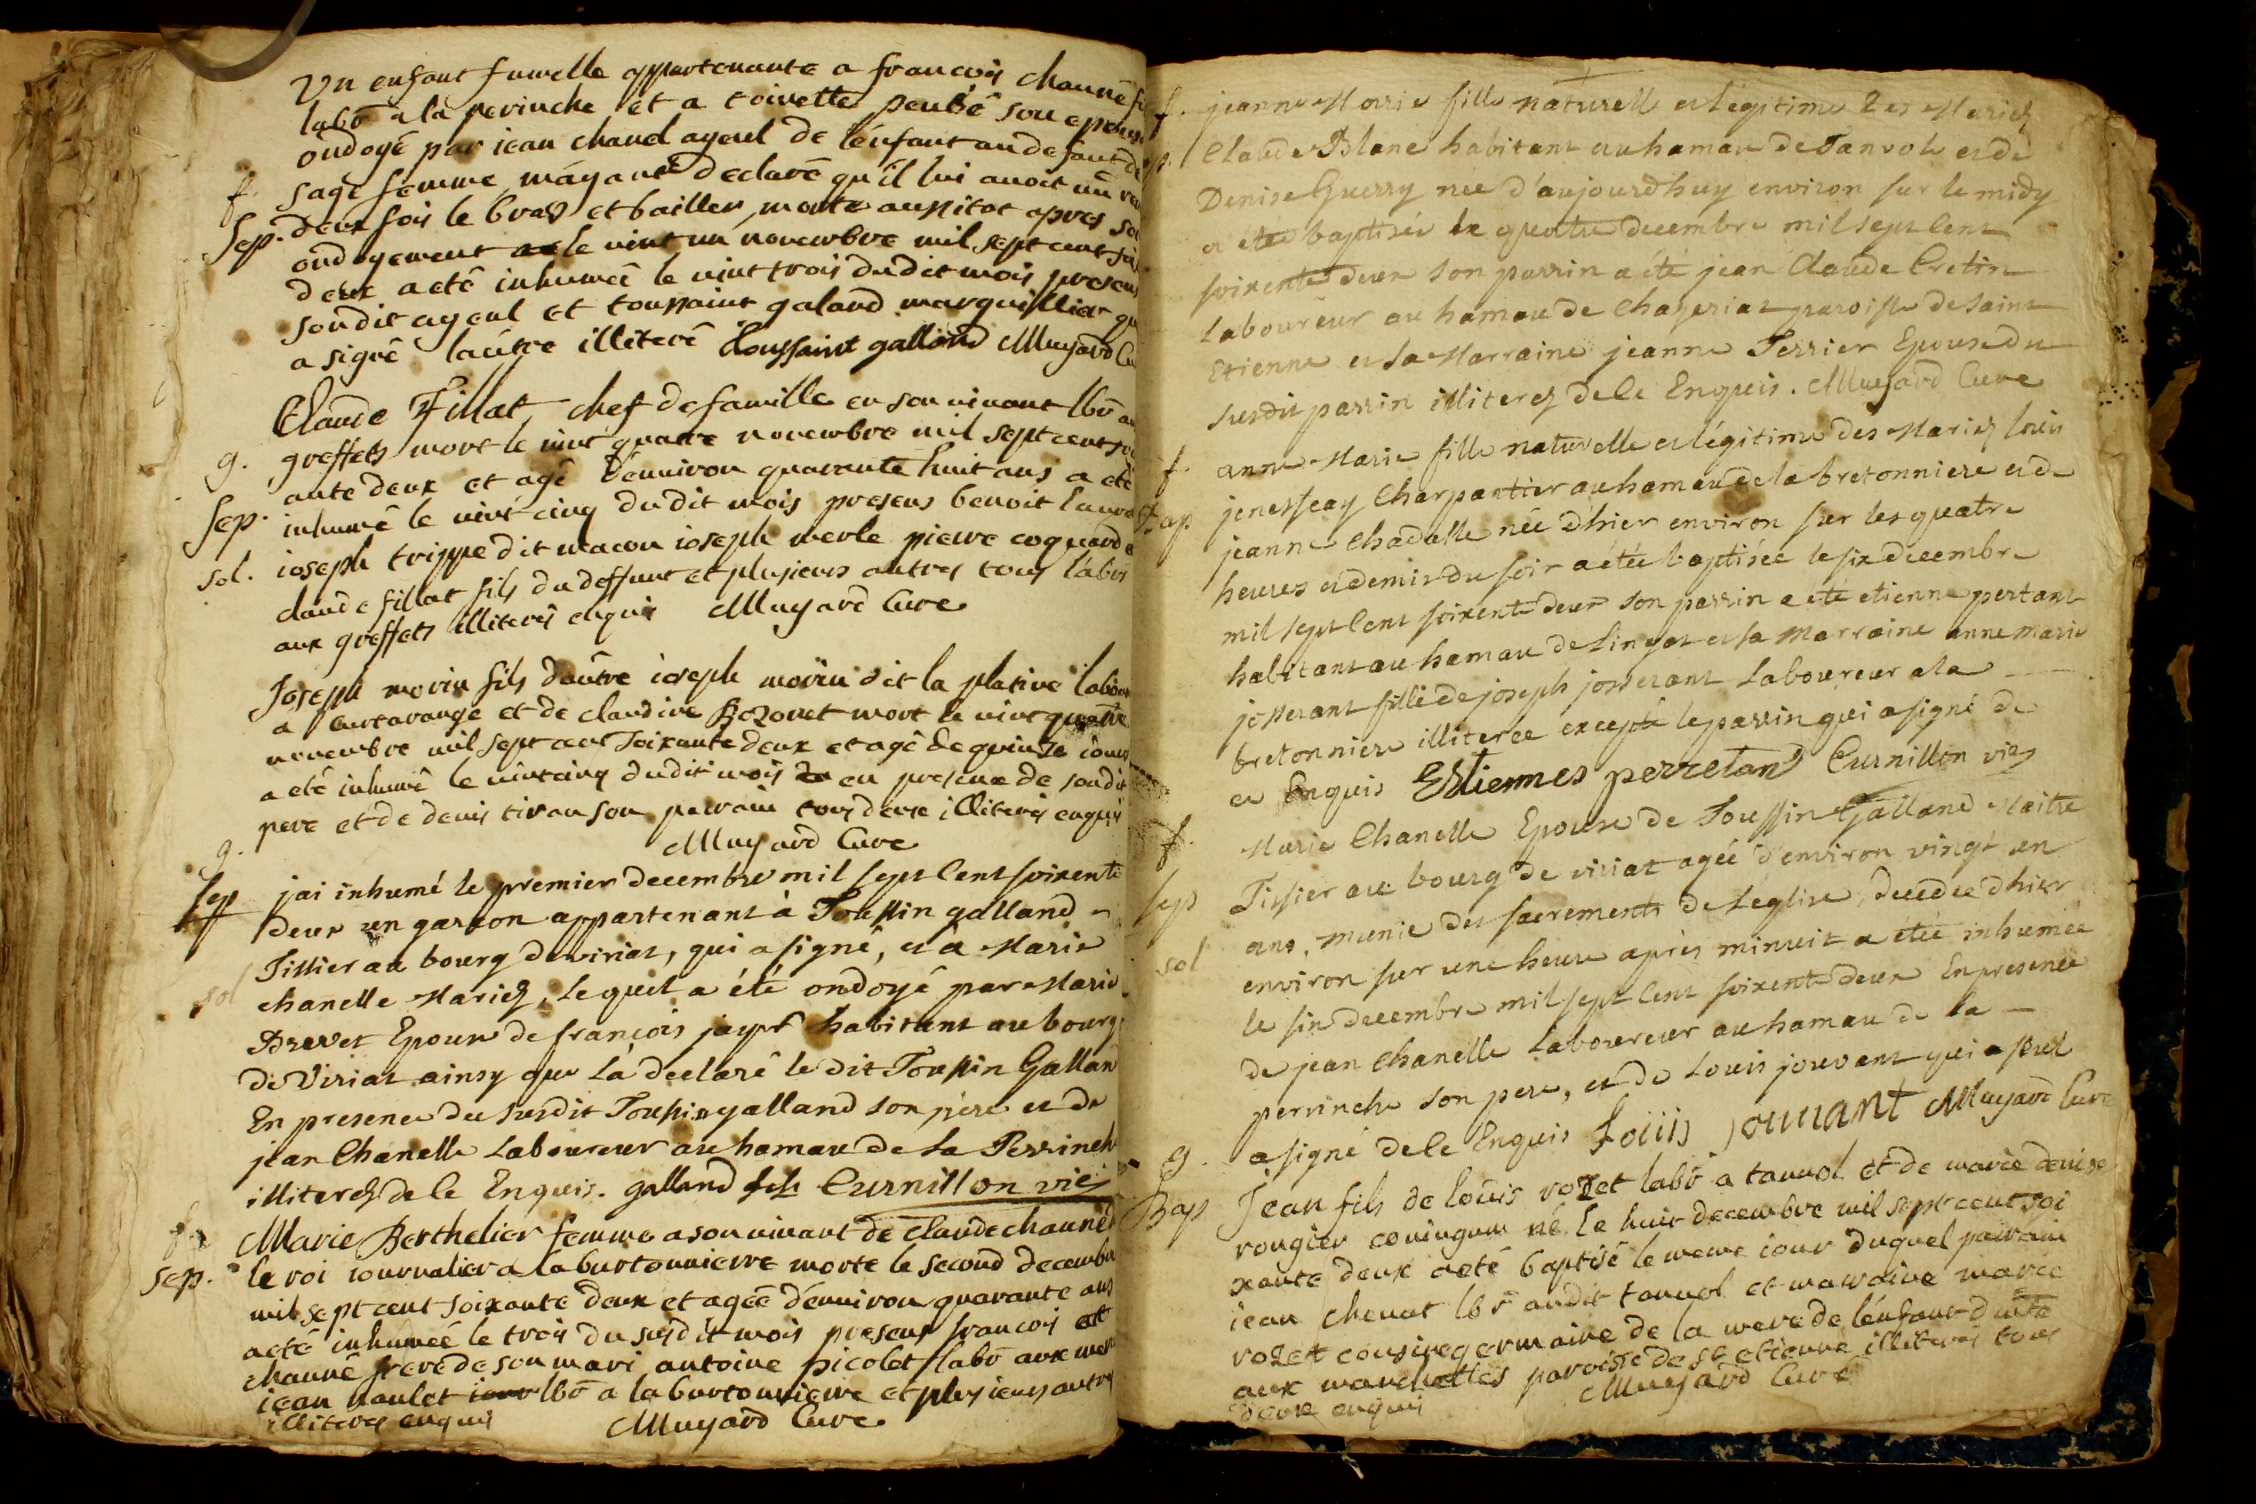 Un enfant fumelle appartenante a francois chaunè
labō a la perinche et a toinette peubé son epouse
ondoyé par iean chanel ayeul de lénfant au defaut de
f. sage femme m'áyant declarè qu'il lui avoit vû
Sep. deux fois le bras et bailler, morte aussitot apres
ondoyement le vint un novembre mil sept cent
deux a etè inhumeè le vint trois dudit mois presens
sondit ayeul et toussaint galand marguillier
a signè laútre illiterè toussaint galland Muyard Cu
Claude Fillat chef de famille en son vivant lbō
g. greffets mort le vint quatre novembre mil sept cent
ante deux et agè d'énviron quarante huit ans a etè
Sep. inhumè le vint cinq dudit mois presens benoit
sol. ioseph trippe dit macon ioseph merle pierre coquard
claude fillat fils du deffunt et plusieurs autres tous labrs
aux greffets illiterès enquis Muyard Cure
Joseph morin fils dautre ioseph morin dit la platine
a curtarange et de claudine Bozonet mort le vint quatre
novembre mil sept cent soixante deux et agè de quinze iours
a etè inhumè le vintcinq dudit mois en presence de sondit
pere et de denis tiran son parrain tous deux illiterès enquis
g. Muyard Cure
Sep jai inhumé le premier decembre mil sept Cent soixente
deux un garcon appartenant à Toussin galland
Tissier au bourg de viriat, qui a signé, et à Marie
sol chanelle Mariez, lequel a été ondoyé par Marie
Brevet Epouse de françois jayr habitant au bourg
de Viriat ainsy que l'a declaré le dit Toussin Galland
En presence du susdit Toussin galland son père et de
jean Chanelle Laboureur au hamau de La Perrinche
illiterez de ce Enquis. galland Curnillon vic
f. Marie Berthelier femme a son vivant de claude chaunèt
sep. le roi iournalier a la burtonnierre morte le second decembre
mil sept cent soixante deux et ageè d'énviron quarante ans
a etè inhumeè le trois du susdit mois presens francois
chaunè frere de son mari antoine picolet labō
iean naulet lbō a la burtonnierre et plusieurs autres
illiteres enquis Muyard Cure
f. jeanne Marie fille naturelle et légitime des Mariez
Claude Blanc habitant au hamau de Tanvole et de
Denise Guerry née d'aujourdhuy environ sur le midy
a été baptisée le quatre decembre mil sept Cent
soixente deux son parrin a été jean Claude Cretin
Laboureur au hamau de Chazeriat paroisse de Saint
Etienne et sa Marraine jeanne Perrier Epouse du
susdit parrin illiterez de ce Enquis. Muyard Cure
f. anne Marie fille naturelle et légitime des Mariez louis
Bap jenesseay Charpantier au hamau de la bretonniere et de
jeanne Chadalle née d'hier environ sur les quatre
heures et demie du soir a étée baptisée le six decembre
mil sept Cent soixente deux son parrin a été etienne pertant
habitant au hamau de Lingat et sa Marraine anne marie
josserant fille de joseph josserant Laboureur a la
bretonniere illiterée excepté le parrin qui a signé de
ce Enquis Estiennes perretant Curnillon vic
f. Marie Chanelle Epouse de Toussin Galland Maitre
Sep Tissier au bourg de viriat agée d'environ vingt un
ans, munie des sacrements de Leglise, decedée d'hier
sol environ sur une heure après minuit a étée inhumée
le six decembre mil sept Cent soixente deux En presence
de jean Chanelle Laboureur au hamau de la
perrinche son pere, et de Louis jouvant qui a seul
a signé de ce Enquis Louiis jouuant Muyard Cure
g. Jean fils de loüis rozet labō a tanvol et de marie denise
Bap rougier coniugum né le huit decembre mil sept cent soi
xante deux a eté baptisè le meme iour duquel parrain
iean chenat lbō audit tanvol et marraine marie
rozet cousine germaine de la mere de lénfant
aux manchettes paroisse de st etienne illiteres tous
deux enquis Muyard Curé